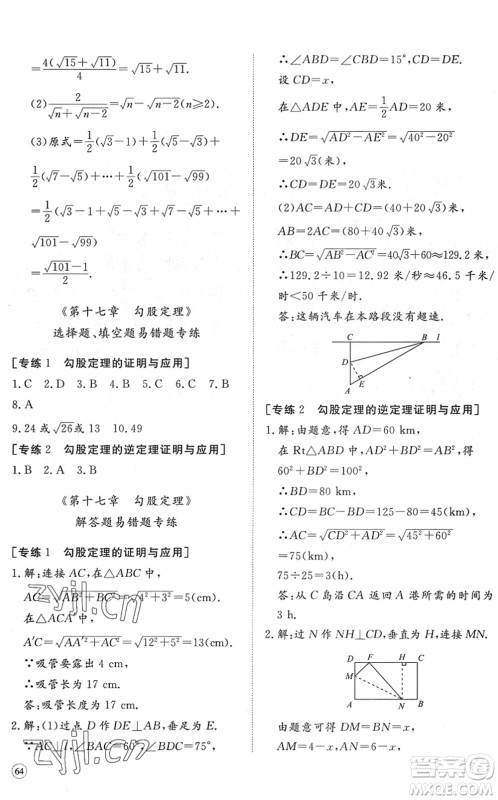 =4(√15+√11)/4=√15+√11.
(2)2/(√n+√(n-2))=√n-√(n-2)(n≥2).
(3)原式=1/2(√3-1)+1/2(√5-√3)+
1/2(√7-√5)+…+1/2(√101-√99)
=1/2(√3-1+√5-√3+√7-√5+…+
√101-√99)
=(√101-1)/2.
《第十七章 勾股定理》
选择题、填空题易错题专练
[专练1 勾股定理的证明与应用]
1.C 2.D 3.B 4.B 5.C 6.C 7.C
8.A
9.24或√26或√13 10.49
[专练2 勾股定理的逆定理证明与应用]
1.B 2.A 3.B
《第十七章 勾股定理》
解答题易错题专练
[专练1 勾股定理的证明与应用]
1.解:连接AC,在△ABC中,
∴AC=√(AB²+BC²)=√(4²+3²)=5(cm),
在△ACA′中,
A′C=√(AA′²+AC²)=√(12²+5²)=13(cm),
∵吸管露出杯口外4 cm,
∴吸管长为17 cm.
答:吸管长为17 cm.
2.解:(1)过点D作DE⊥AB于点E,
∵AC⊥l,∠ABC=∠BDC=75°,
64
∴∠ABD=∠CBD=15°,CD=DE.
设CD=x,
在△ADE中,AE=1/2AD=20米,
∴DE=√(AD²-AE²)=√(40²-20²)
=20√3(米),
∴CD=DE=20√3米.
(2)AC=AD+CD=(40+20√3)米,
AB=2AC=(80+40√3)米,
∴BC=√(AB²-AC²)=40√3+60≈129.2米,
∴129.2÷10=12.92米/秒≈46.5千米/
时<50千米/时,
答:这辆汽车在本路段没有超速.
C B l
D
E
A
[专练2 勾股定理的逆定理证明与应用]
1.解:由题意,得AD=60 km,
在Rt△ABD中,AD²+BD²=AB²,得
60²+BD²=100².
∴BD=80 km.
∴CD=BC-BD=125-80=45(km),
∴AC=√(CD²+AD²)=√(45²+60²)
=75(km).
75÷25=3(h).
答:从C岛沿CA返回A港所需的时间为
3 h.
2.解:过N作NH⊥CD,垂直为H,
D F H C
M
A N B
由题意可得:BN=2,DM=2,
AM=4-2=2,AN=6-2=4,